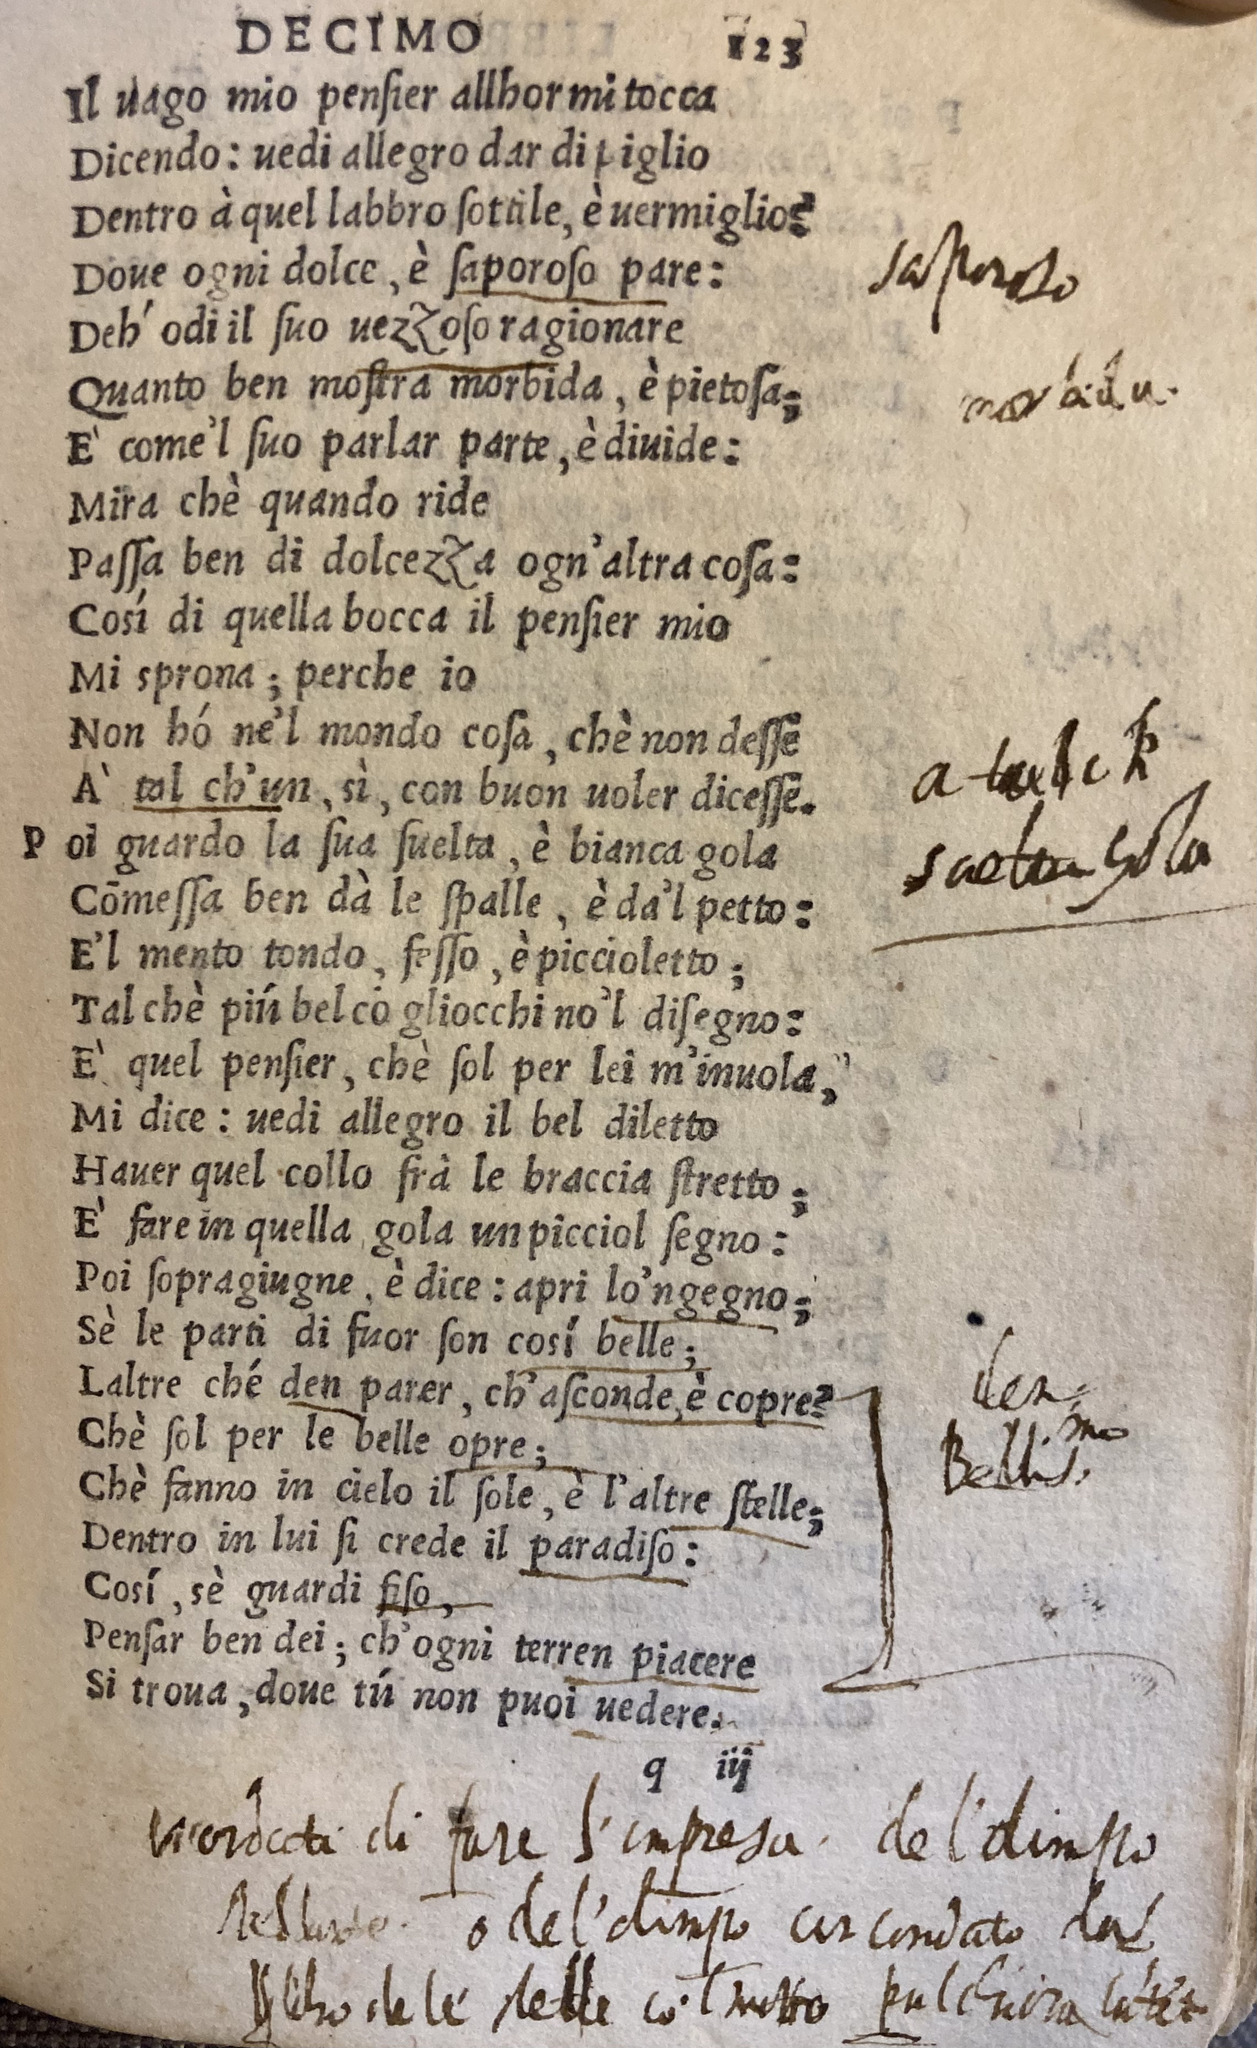 DECIMO 123
Il uago mio penſier allhor mi tocca
Dicendo: uedi allegro dar di piglio
Dentro à quel labbro ſottile, è uermiglio?
Doue ogni dolce, è ſaporoſo pare:
saporoso
Deh' odi il ſuo uezzoſo ragionare
Quanto ben moſtra morbida, è pietoſa;
morbida.
E' come'l ſuo parlar parte, è diuide:
Mira chè quando ride
Paſſa ben di dolcezza ogn'altra coſa:
Cosí di quella bocca il penſier mio
Mi sprona; perche io
Non hó ne'l mondo coſa, chè non deſſe
A' tal ch'un, sì, con buon uoler diceſſe.
a tal ch
Poi guardo la sua ſuelta, è bianca gola
suelta gola
Cōmeſſa ben dà le ſpalle, è da'l petto:
E'l mento tondo, feſſo, è piccioletto;
Tal chè piú bel cō gliocchi no'l diſegno:
E' quel penſier, chè ſol per lei m'inuola,
Mi dice: uedi allegro il bel diletto
Hauer quel collo frà le braccia ſtretto;
E' fare in quella gola un picciol ſegno:
Poi ſopragiugne, è dice: apri lo'ngegno;
Sè le parti di fuor ſon cosí belle;
Laltre ché den parer, ch'aſconde, è copre?
den
Chè ſol per le belle opre;
Bellis.mo
Chè fanno in cielo il ſole, è l'altre ſtelle;
Dentro in lui ſi crede il paradiſo:
Cosí, sè guardi fiſo,
Penſar ben dei; ch'ogni terren piacere
Si troua, doue tú non puoi uedere.
q iij
ricordati di fare l'impresa. del'olimpo
o del'olimpo circondato dal
dele stelle co'l motto pulchriora latet